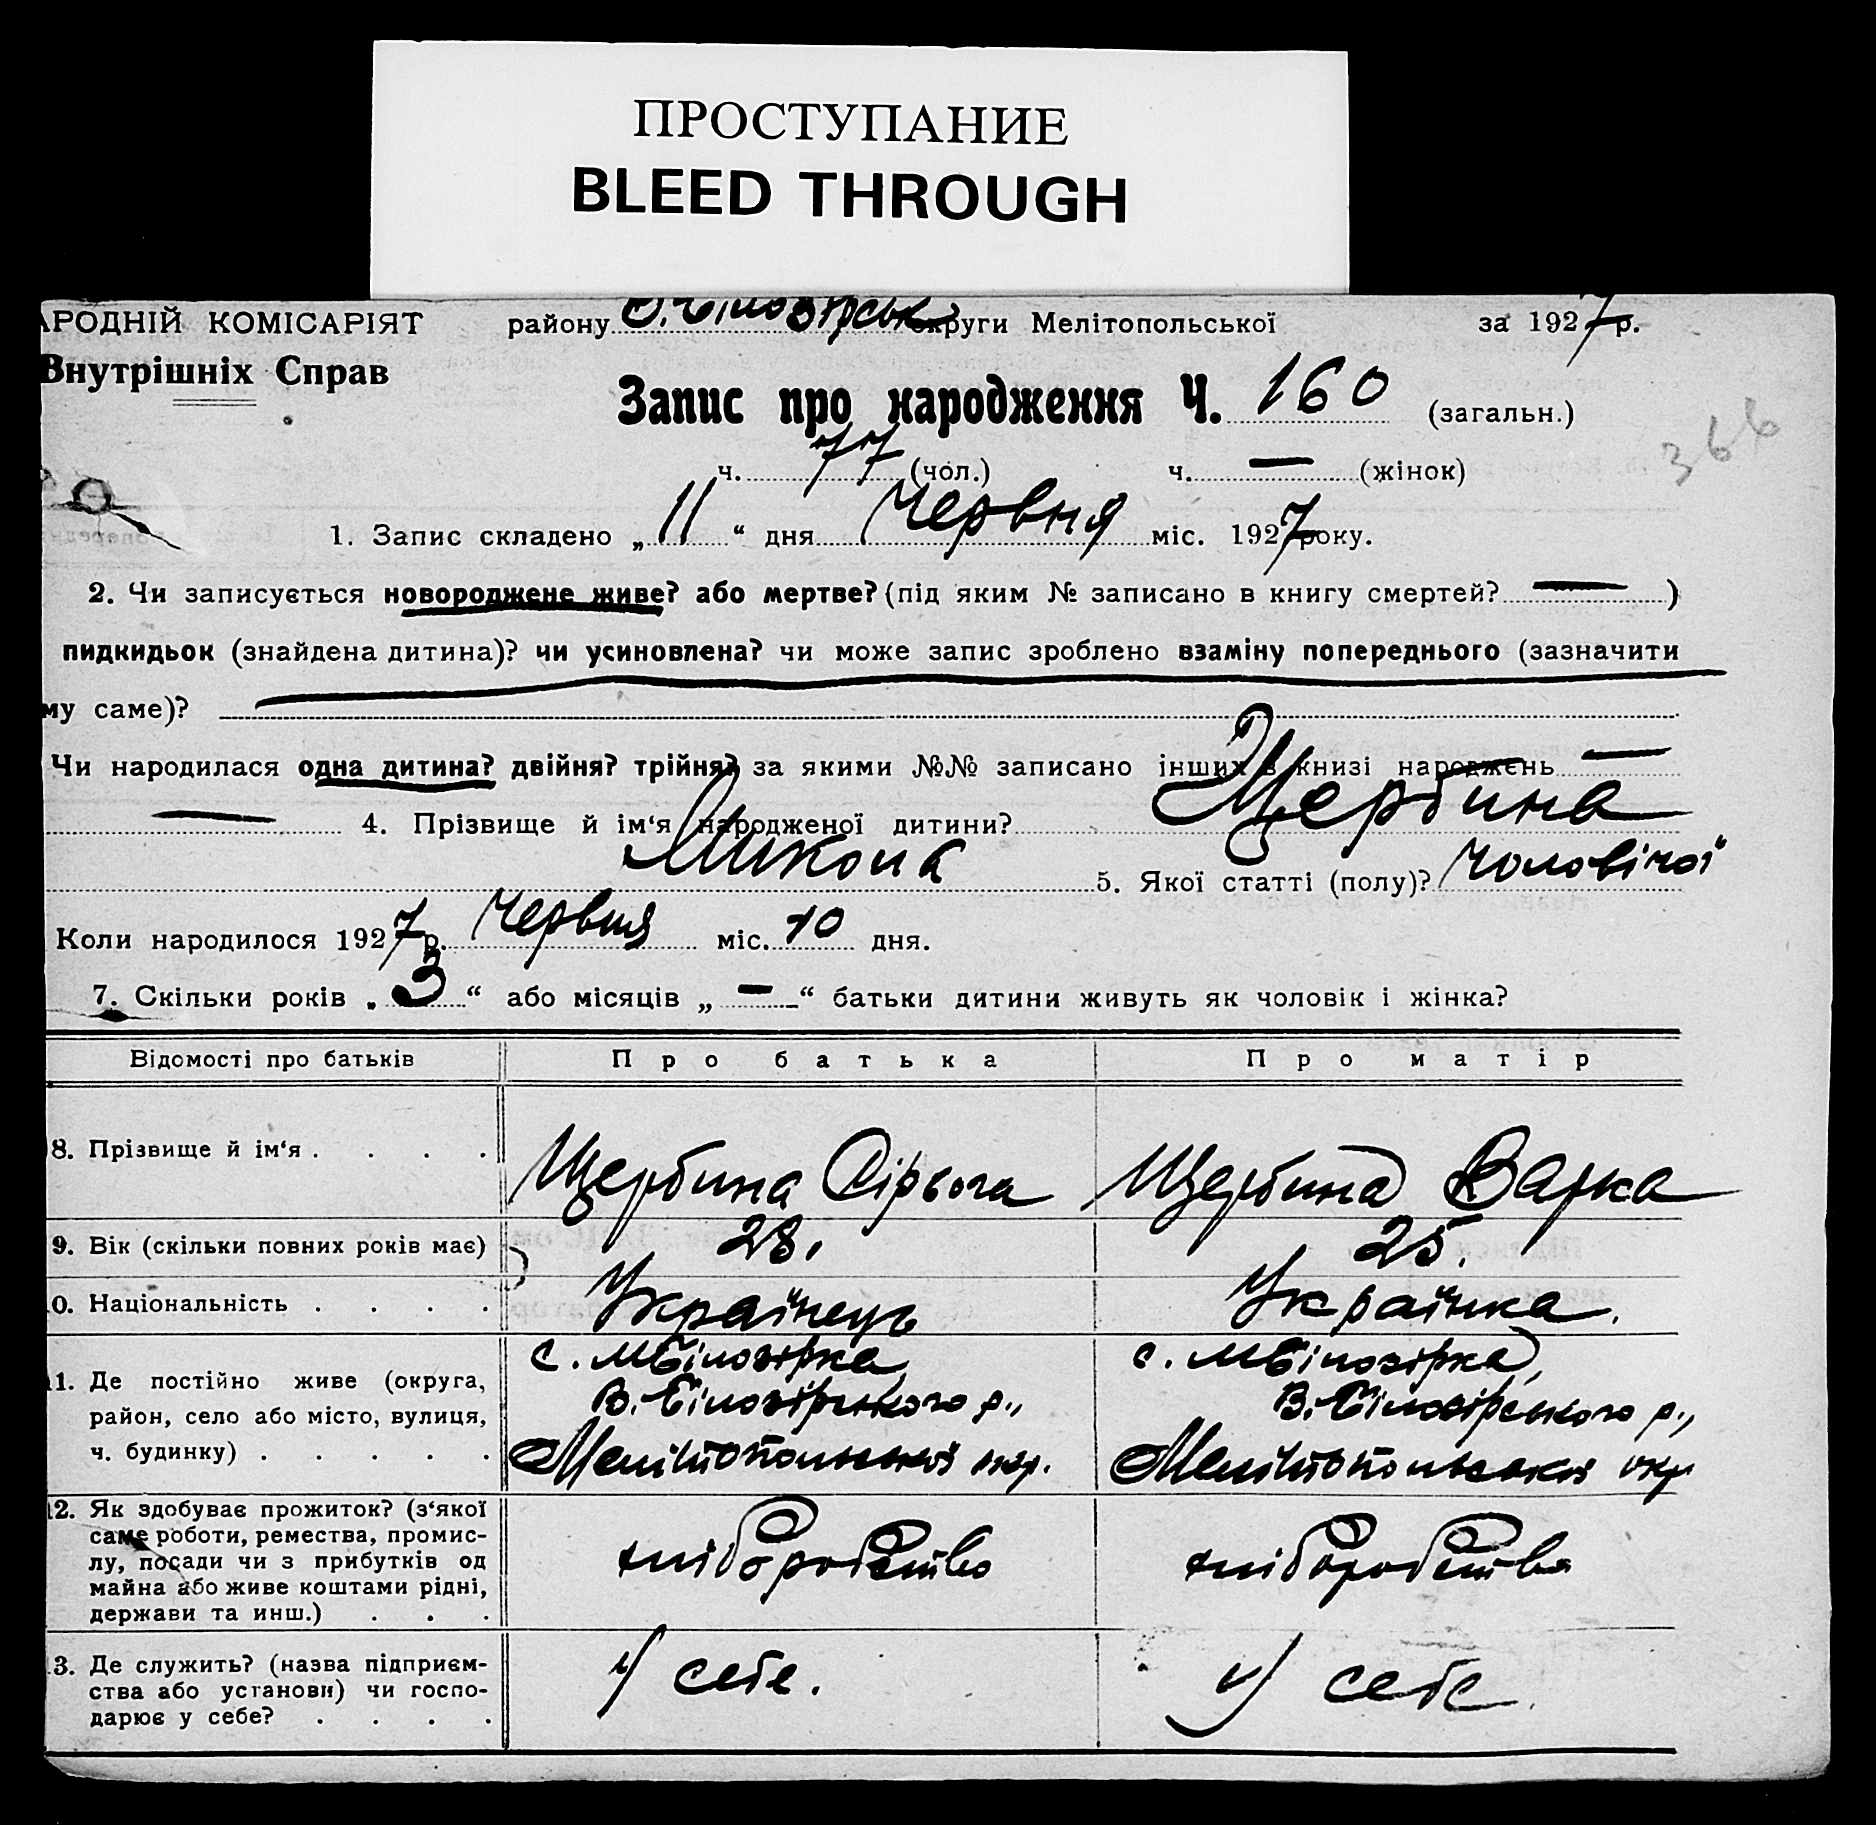 ПРОСТУПАНИЕ
BLEED THROUGH
АРОДНІЙ КОМІСАРІЯТ району В. Білозірськ округи Мелітопольської за 1927 р.
Внутрішніх Справ
Запис про народження Ч. 160 (загальн.)
366
ч. 77 (чол.) ч. — (жінок)
1. Запис складено „11“ дня Червня міс. 1927 року.
2. Чи записується новороджене живе? або мертве? (під яким № записано в книгу смертей? — )
пидкидьок (знайдена дитина)? чи усиновлена? чи може запис зроблено взаміну попереднього (зазначити
му саме)?
Чи народилася одна дитина? двійня? трійня? за якими №№ записано інших в книзі народжень —
— 4. Прізвище й ім‘я народженої дитини? Щербина
Микола 5. Якої статті (полу)? Чоловічої
Коли народилося 1927 р. Червня міс. 10 дня.
7. Скільки років „3“ або місяців „—“ батьки дитини живуть як чоловік і жінка?
Відомості про батьків Про батька Про матір
8. Прізвище й ім‘я . . . . Щербина Сірьога Щербина Варка
9. Вік (скільки повних років має) 28. 25.
0. Національність . . . . Українець Українка.
с. МБілозірка, с. МБілозірка,
1. Де постійно живе (округа,
район, село або місто, вулиця, В. Білозірського р., В. Білозірського р.,
ч. будинку) . . . . . Мелітопольської окр. Мелітопольської окр
2. Як здобуває прожиток? (з‘якої
саме роботи, ремества, промис-
лу, посади чи з прибутків од хліборобство хліборобство
майна або живе коштами рідні,
держави та инш.) . . .
3. Де служить? (назва підприєм-
ства або установи) чи госпо- У себе. У себе.
дарює у себе? . . . .